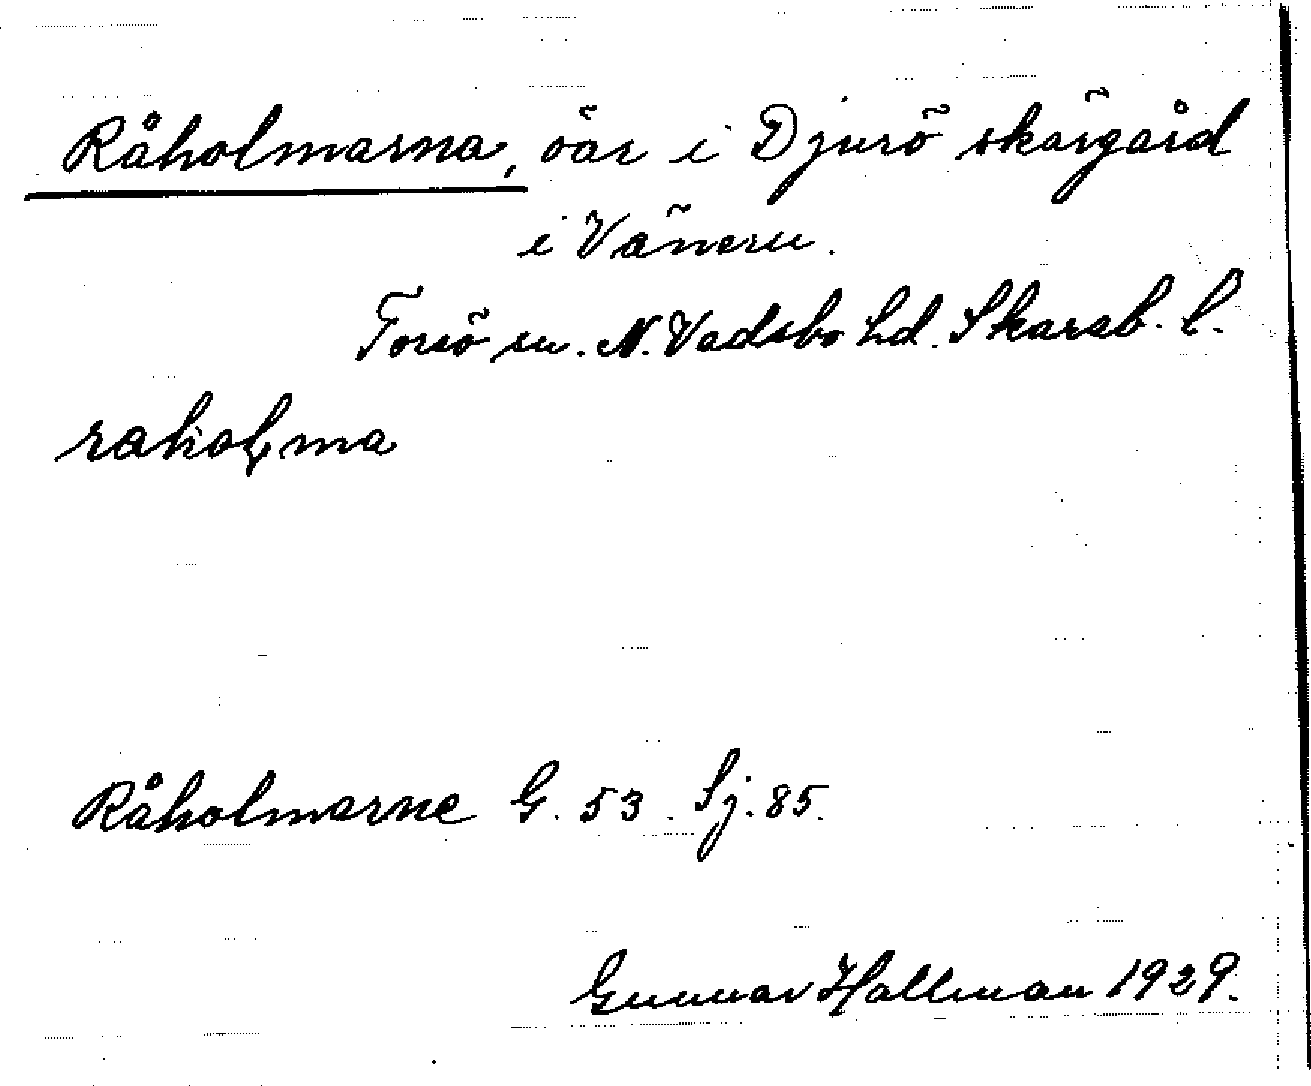 Råholmarna, öar i Djurö skärgård
i Vänern.
Torsö sn. N. Vadsbo hd. Skarab. l.
raholma
Råholmarne G. 53. Sj. 85.
Gunnar Hallman 1929.